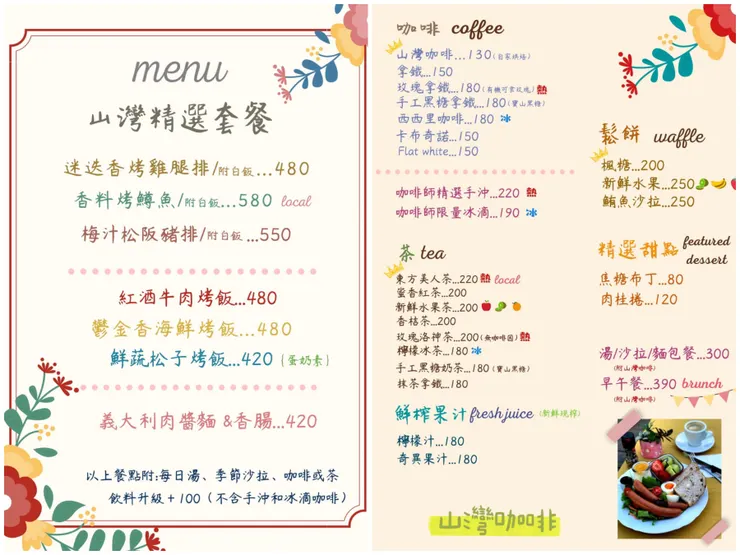 menu
山灣精選套餐
迷迭香烤雞腿排/附白飯...480
香料烤鱒魚/附白飯...580 local
梅汁松阪豬排/附白飯...550
紅酒牛肉烤飯...480
鬱金香海鮮烤飯...480
鮮蔬松子烤飯...420 (蛋奶素)
義大利肉醬麵 &香腸...420
以上餐點附:每日湯、季節沙拉、咖啡或茶
飲料升級+100 (不含手沖和冰滴咖啡)
咖啡 coffee
山灣咖啡...130(自家烘焙)
拿鐵...150
玫瑰拿鐵...180(有機可食玫瑰) 熱
手工黑糖拿鐵...180(寶山黑糖)
西西里咖啡...180 冰
卡布奇諾...150
Flat white...150
咖啡師精選手沖...220 熱
咖啡師限量冰滴...190 冰
茶 tea
東方美人茶...220 熱 local
蜜香紅茶...200
新鮮水果茶...200
香桔茶...200
玫瑰洛神茶...200(無咖啡因) 熱
檸檬冰茶...180 冰
手工黑糖奶茶...180(寶山黑糖)
抹茶拿鐵...180
鮮榨果汁 fresh juice (新鮮現榨)
檸檬汁...180
奇異果汁...180
山灣咖啡
鬆餅 waffle
楓糖...200
新鮮水果...250
鮪魚沙拉...250
精選甜點 featured dessert
焦糖布丁...80
肉桂捲...120
湯/沙拉/麵包餐...300
(附山灣咖啡)
早午餐...390 brunch
(附山灣咖啡)